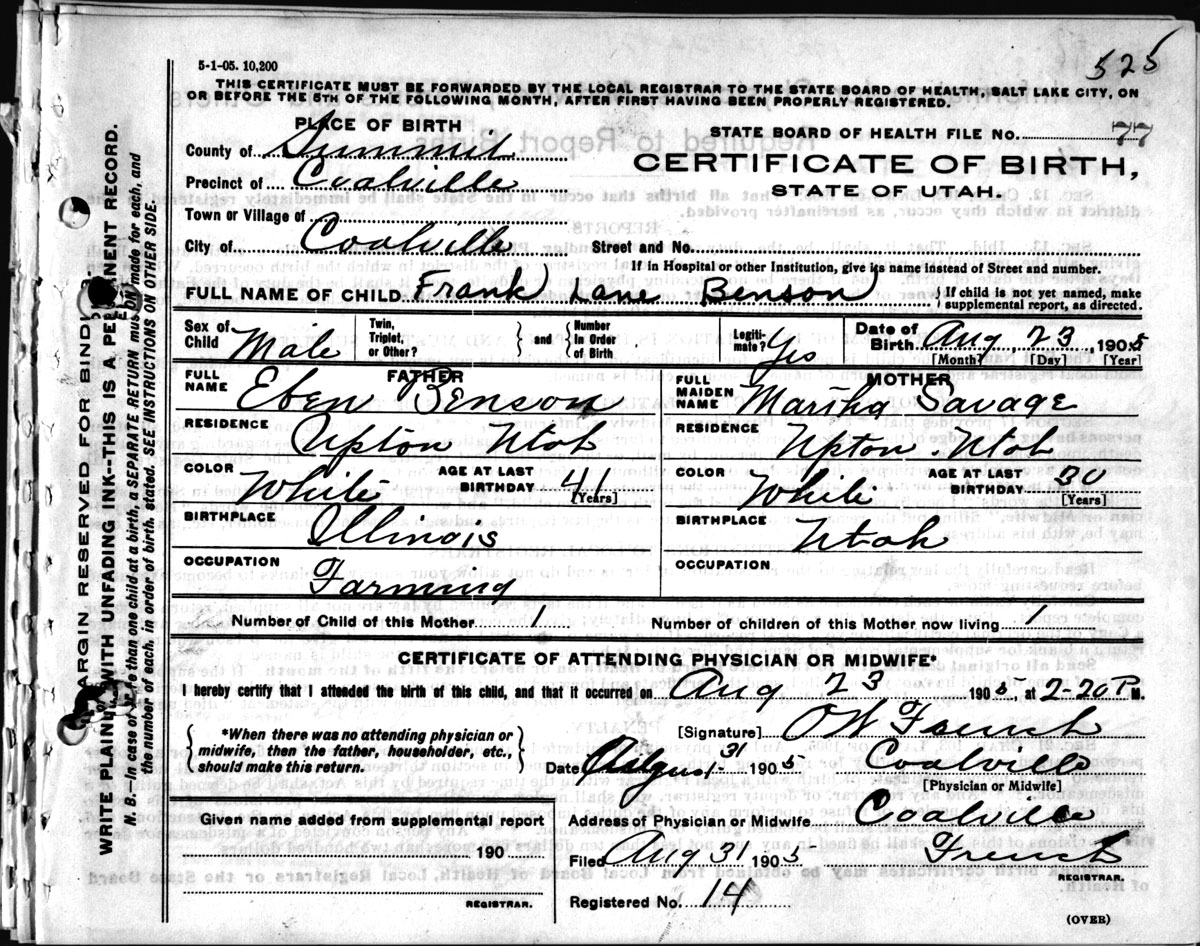 525
5-1-05. 10,200
THIS CERTIFICATE MUST BE FORWARDED BY THE LOCAL REGISTRAR TO THE STATE BOARD OF HEALTH, SALT LAKE CITY, ON
OR BEFORE THE 5TH OF THE FOLLOWING MONTH, AFTER FIRST HAVING BEEN PROPERLY REGISTERED.
PLACE OF BIRTH
STATE BOARD OF HEALTH FILE NO. 77
County of Summit
CERTIFICATE OF BIRTH,
Precinct of Coalville
STATE OF UTAH.
Town or Village of
City of Coalville Street and No.
If in Hospital or other Institution, give its name instead of Street and number.
FULL NAME OF CHILD Frank Lane Benson { If child is not yet named, make supplemental report, as directed.
Sex of Child Male Twin, Triplet, or Other? } and { Number In Order of Birth Legiti- mate? Yes Date of Birth Aug 23, 1905
[Month] [Day] [Year]
FATHER
FULL NAME Eben Benson
MOTHER
FULL MAIDEN NAME Martha Savage
RESIDENCE Upton Utah
RESIDENCE Upton Utah
COLOR White AGE AT LAST BIRTHDAY 41 [Years]
COLOR White AGE AT LAST BIRTHDAY 30 [Years]
BIRTHPLACE Illinois
BIRTHPLACE Utah
OCCUPATION Farming
OCCUPATION
Number of Child of this Mother 1 Number of children of this Mother now living 1
CERTIFICATE OF ATTENDING PHYSICIAN OR MIDWIFE*
I hereby certify that I attended the birth of this child, and that it occurred on Aug 23 1905, at 2-20 P. M.
*When there was no attending physician or
midwife, then the father, householder, etc.,
should make this return.
[Signature] O W French
Date August 31 1905 Coalville
[Physician or Midwife]
Given name added from supplemental report
190
REGISTRAR.
Address of Physician or Midwife Coalville
Filed Aug 31 1905 French
REGISTRAR.
Registered No. 14
(OVER)
MARGIN RESERVED FOR BINDING
WRITE PLAINLY WITH UNFADING INK--THIS IS A PERMANENT RECORD.
N. B.--In case of more than one child at a birth, a SEPARATE RETURN must be made for each, and
the number of each, in order of birth, stated. SEE INSTRUCTIONS ON OTHER SIDE.